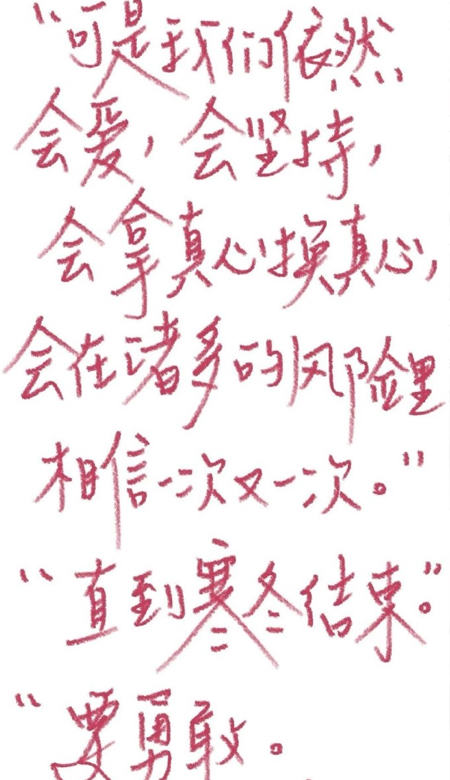 “可是我们依然
会爱，会坚持，
会拿真心换真心，
会在诸多的风险里
相信一次又一次。”
“直到寒冬结束”。
“要勇敢。